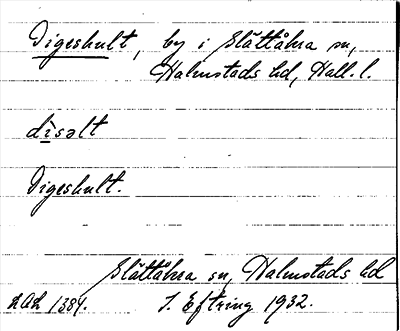 Digeshult, by i Slättåkra sn,
Halmstads hd, Hall. l.
dìsəlt
Digeshult.
Slättåkra sn, Halmstads hd
RAä 1384. J. Eftring 1932.